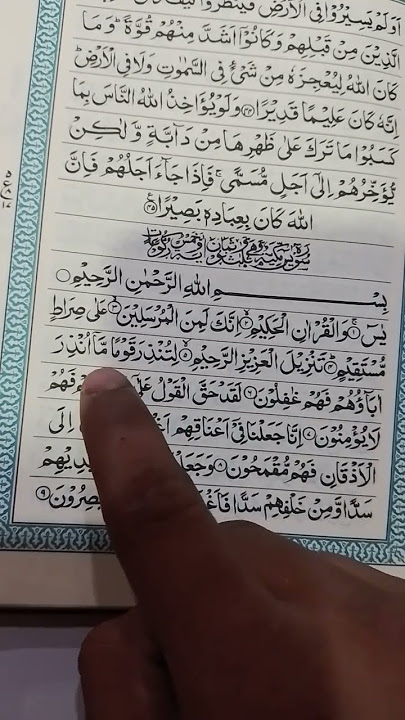 اَوَلَمْ يَسِيْرُوْا فِى الْاَرْضِ فَيَنْظُرُوْا كَيْفَ
الَّذِيْنَ مِنْ قَبْلِهِمْ وَكَانُوْٓا اَشَدَّ مِنْهُمْ قُوَّةً ؕ وَمَا
كَانَ اللّٰهُ لِيُعْجِزَهٗ مِنْ شَىْءٍ فِى السَّمٰوٰتِ وَلَا فِى الْاَرْضِ ؕ
اِنَّهٗ كَانَ عَلِيْمًا قَدِيْرًا ۴۴ وَلَوْ يُؤَاخِذُ اللّٰهُ النَّاسَ بِمَا
كَسَبُوْا مَا تَرَكَ عَلٰى ظَهْرِهَا مِنْ دَآبَّةٍ وَّلٰكِنْ
يُّؤَخِّرُهُمْ اِلٰٓى اَجَلٍ مُّسَمًّى ۚ فَاِذَا جَآءَ اَجَلُهُمْ فَاِنَّ
اللّٰهَ كَانَ بِعِبَادِهٖ بَصِيْرًا ۴۵
بِسْمِ اللّٰهِ الرَّحْمٰنِ الرَّحِيْمِ
يٰسٓ ۱ وَالْقُرْاٰنِ الْحَكِيْمِ ۲ اِنَّكَ لَمِنَ الْمُرْسَلِيْنَ ۳ عَلٰى صِرَاطٍ
مُّسْتَقِيْمٍ ۴ تَنْزِيْلَ الْعَزِيْزِ الرَّحِيْمِ ۵ لِتُنْذِرَ قَوْمًا مَّآ اُنْذِرَ
اٰبَآؤُهُمْ فَهُمْ غٰفِلُوْنَ ۶ لَقَدْ حَقَّ الْقَوْلُ فَهُمْ
لَا يُؤْمِنُوْنَ ۷ اِنَّا جَعَلْنَا فِىْٓ اَعْنَاقِهِمْ اِلَى
الْاَذْقَانِ فَهُمْ مُّقْمَحُوْنَ ۸ وَجَعَلْنَا
سَدًّا وَّمِنْ خَلْفِهِمْ سَدًّا ۹